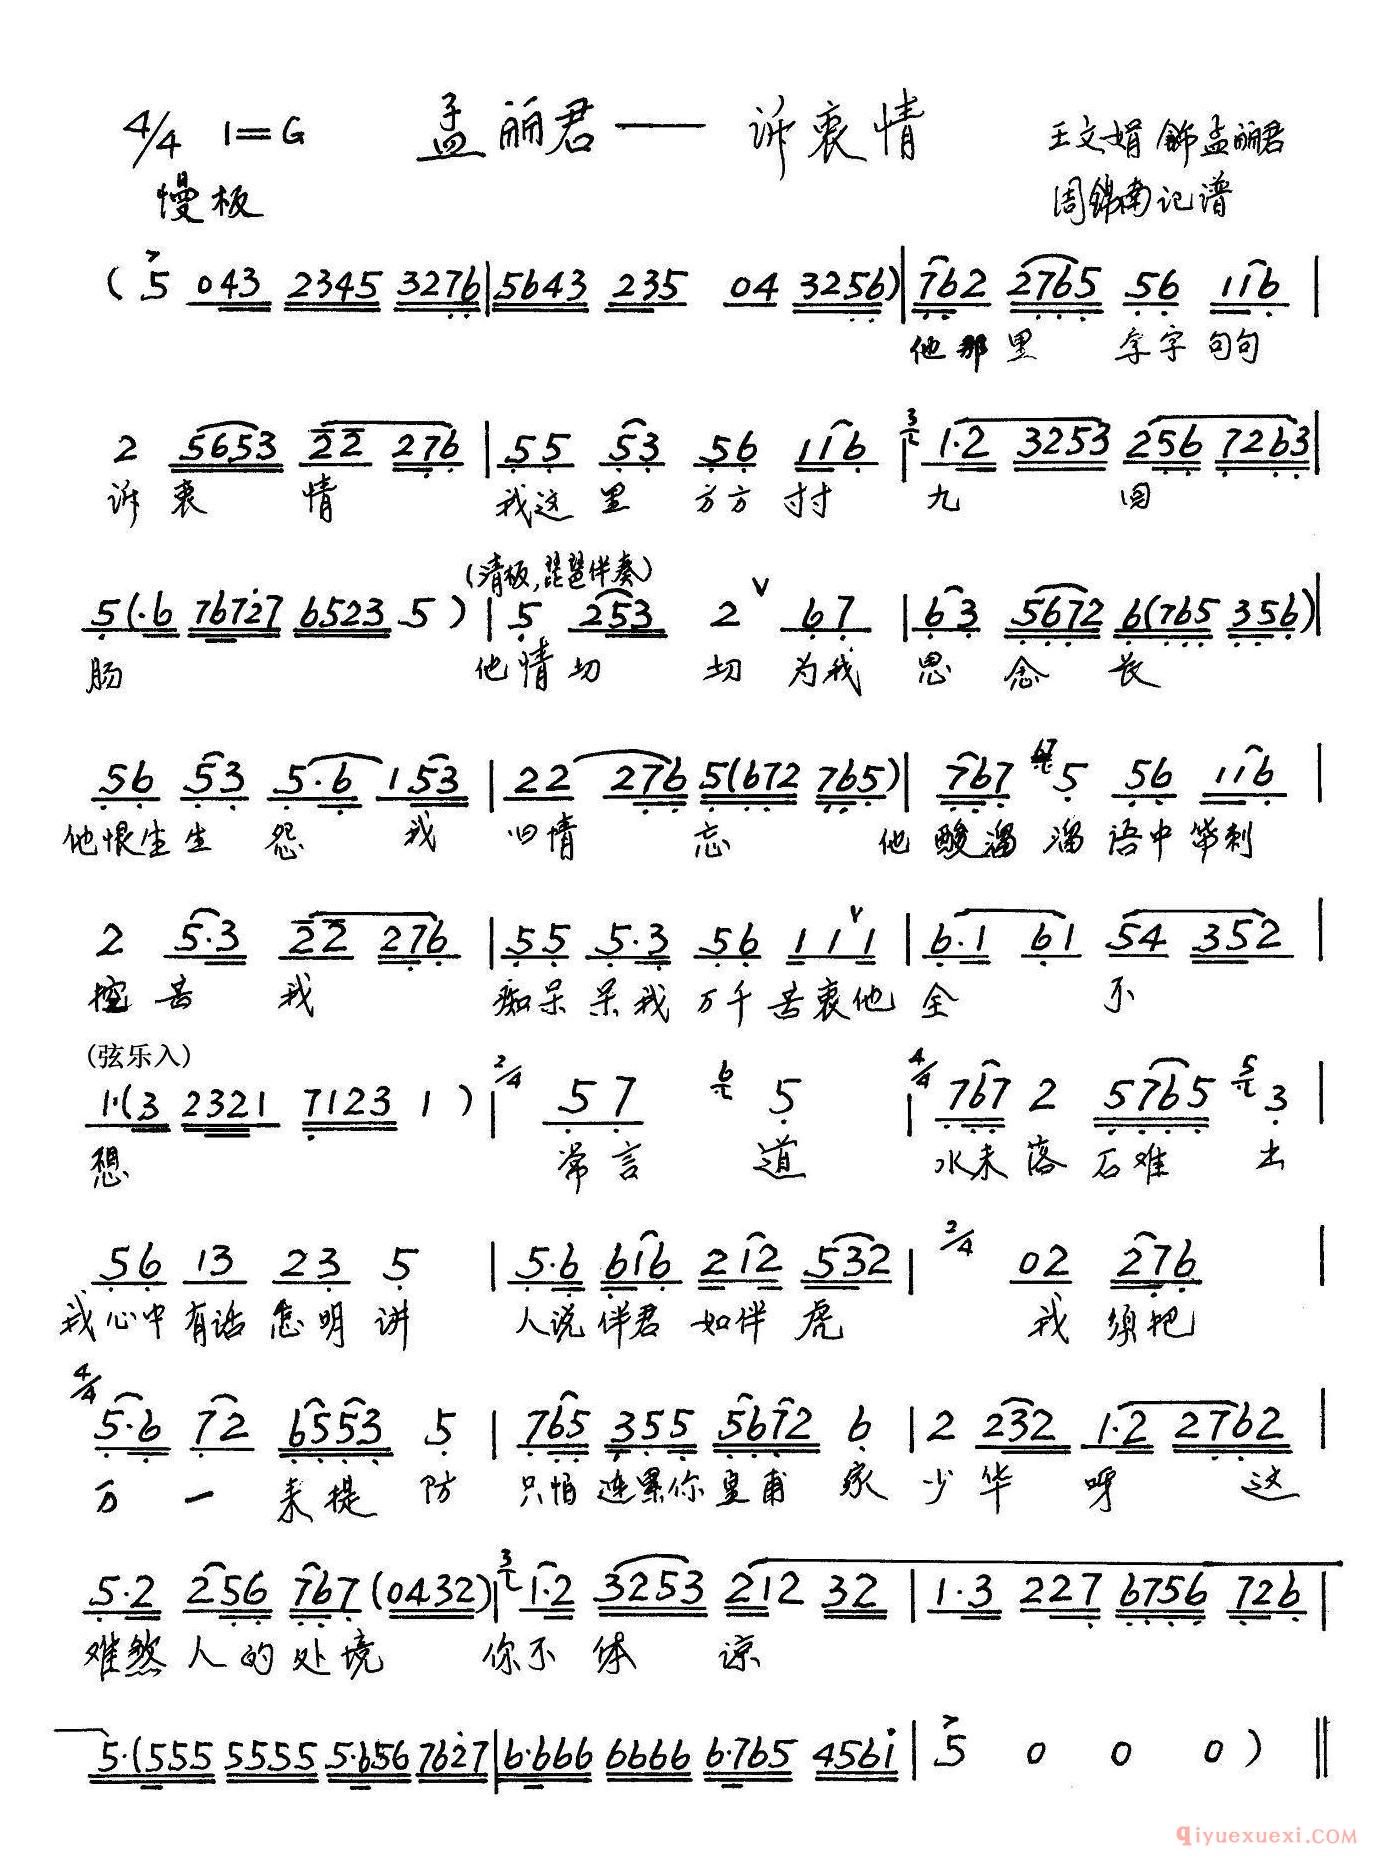 4/4 1=G 孟丽君——诉衷情 王文娟 饰 孟丽君
慢板 周锦南记谱
( 5 043 2345 3276 | 5643 235 04 3256 ) | 762 2765 56 116 |
他那里 字字句句
2 5653 22 276 | 55 53 56 116 | 1·2 3253 256 7263 |
诉衷情 我这里 方方寸寸 九 回
(清板,琵琶伴奏)
5(·6 76727 6523 5 ) | 5 253 2 V 67 | 63 5672 6(765 356) |
肠 他情切 切为我 思念长
56 53 5·6 153 | 22 276 5(672 765) | 767 5 56 116 |
他恨生生怨 我 旧情 忘 他酸溜溜语中带刺
2 5·3 22 276 | 55 5·3 56 11V1 | 6·1 61 54 352 |
控告我 痴呆呆我万千苦衷他 全 不
(弦乐入)
1·(3 2321 7123 1 ) | 2/4 57 6 5 | 4/4 767 2 5765 5 3 |
想 常言道 水未落石难 出
56 13 23 5 | 5·6 616 212 532 | 2/4 02 276 |
我心中有话怎明讲 人说伴君如伴虎 我须把
4/4
5·6 72 6553 5 | 765 355 5672 6 | 2 232 1·2 2762 |
万一来提防 只怕连累你皇甫家 少华呀 这
5·2 256 767 (0432) | 1·2 3253 212 32 | 1·3 227 6756 726 |
难煞人的处境 你不体谅
5·(555 5555 5·656 7627 | 6·666 6666 6·765 4561 | 5 0 0 0 ) ‖
qiyuexuexi.COM